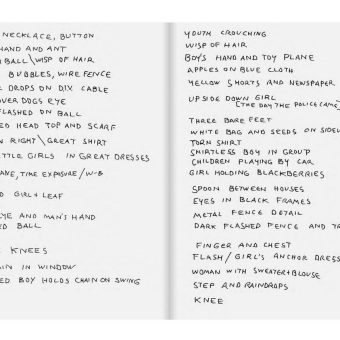 NECKLACE, BUTTON
HAND AND ANT
BALL\WISP OF HAIR
BUBBLES, WIRE FENCE
DROPS ON DIX CABLE
OVER DOGS EYE
FLASHED ON BALL
ED HEAD TOP AND SCARF
N RIGHT\GREAT SHIRT
TTLE GIRLS IN GREAT DRESSES
ANE, TIME EXPOSURE/W-B
D GIRL & LEAF
EYE AND MAN'S HAND
ED BALL
KNEES
AIN IN WINDOW
ED BOY HOLDS CHAIN ON SWING
YOUTH CROUCHING
WISP OF HAIR
BOY'S HAND AND TOY PLANE
APPLES ON BLUE CLOTH
YELLOW SHORTS AND NEWSPAPER
UPSIDE DOWN GIRL
(THE DAY THE POLICE CAME)
THREE BARE FEET
WHITE BAG AND SEEDS ON SIDEW
TORN SHIRT
SHIRTLESS BOY IN GROUP
CHILDREN PLAYING BY CAR
GIRL HOLDING BLACKBERRIES
SPOON BETWEEN HOUSES
EYES IN BLACK FRAMES
METAL FENCE DETAIL
DARK FLASHED FENCE AND TR
FINGER AND CHEST
FLASH/GIRL'S ANCHOR DRESS
WOMAN WITH SWEATER & BLOUSE
STEP AND RAINDROPS
KNEE